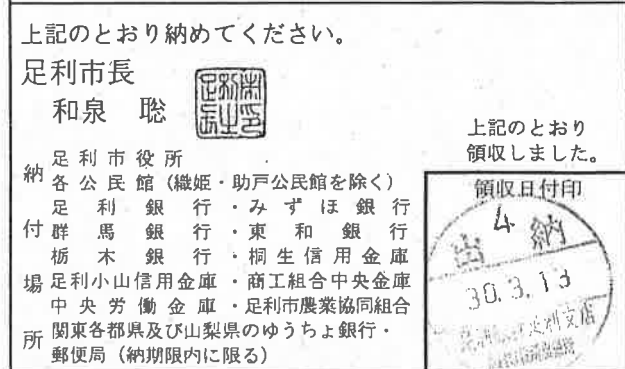 上記のとおり納めてください。
足利市長
和泉 聡
上記のとおり
領収しました。
納付場所
足利市役所
各公民館（織姫・助戸公民館を除く）
足利銀行・みずほ銀行
群馬銀行・東和銀行
栃木銀行・桐生信用金庫
足利小山信用金庫・商工組合中央金庫
中央労働金庫・足利市農業協同組合
関東各都県及び山梨県のゆうちょ銀行・
郵便局（納期限内に限る）
領収日付印
4
出納
30.3.13
足利支店